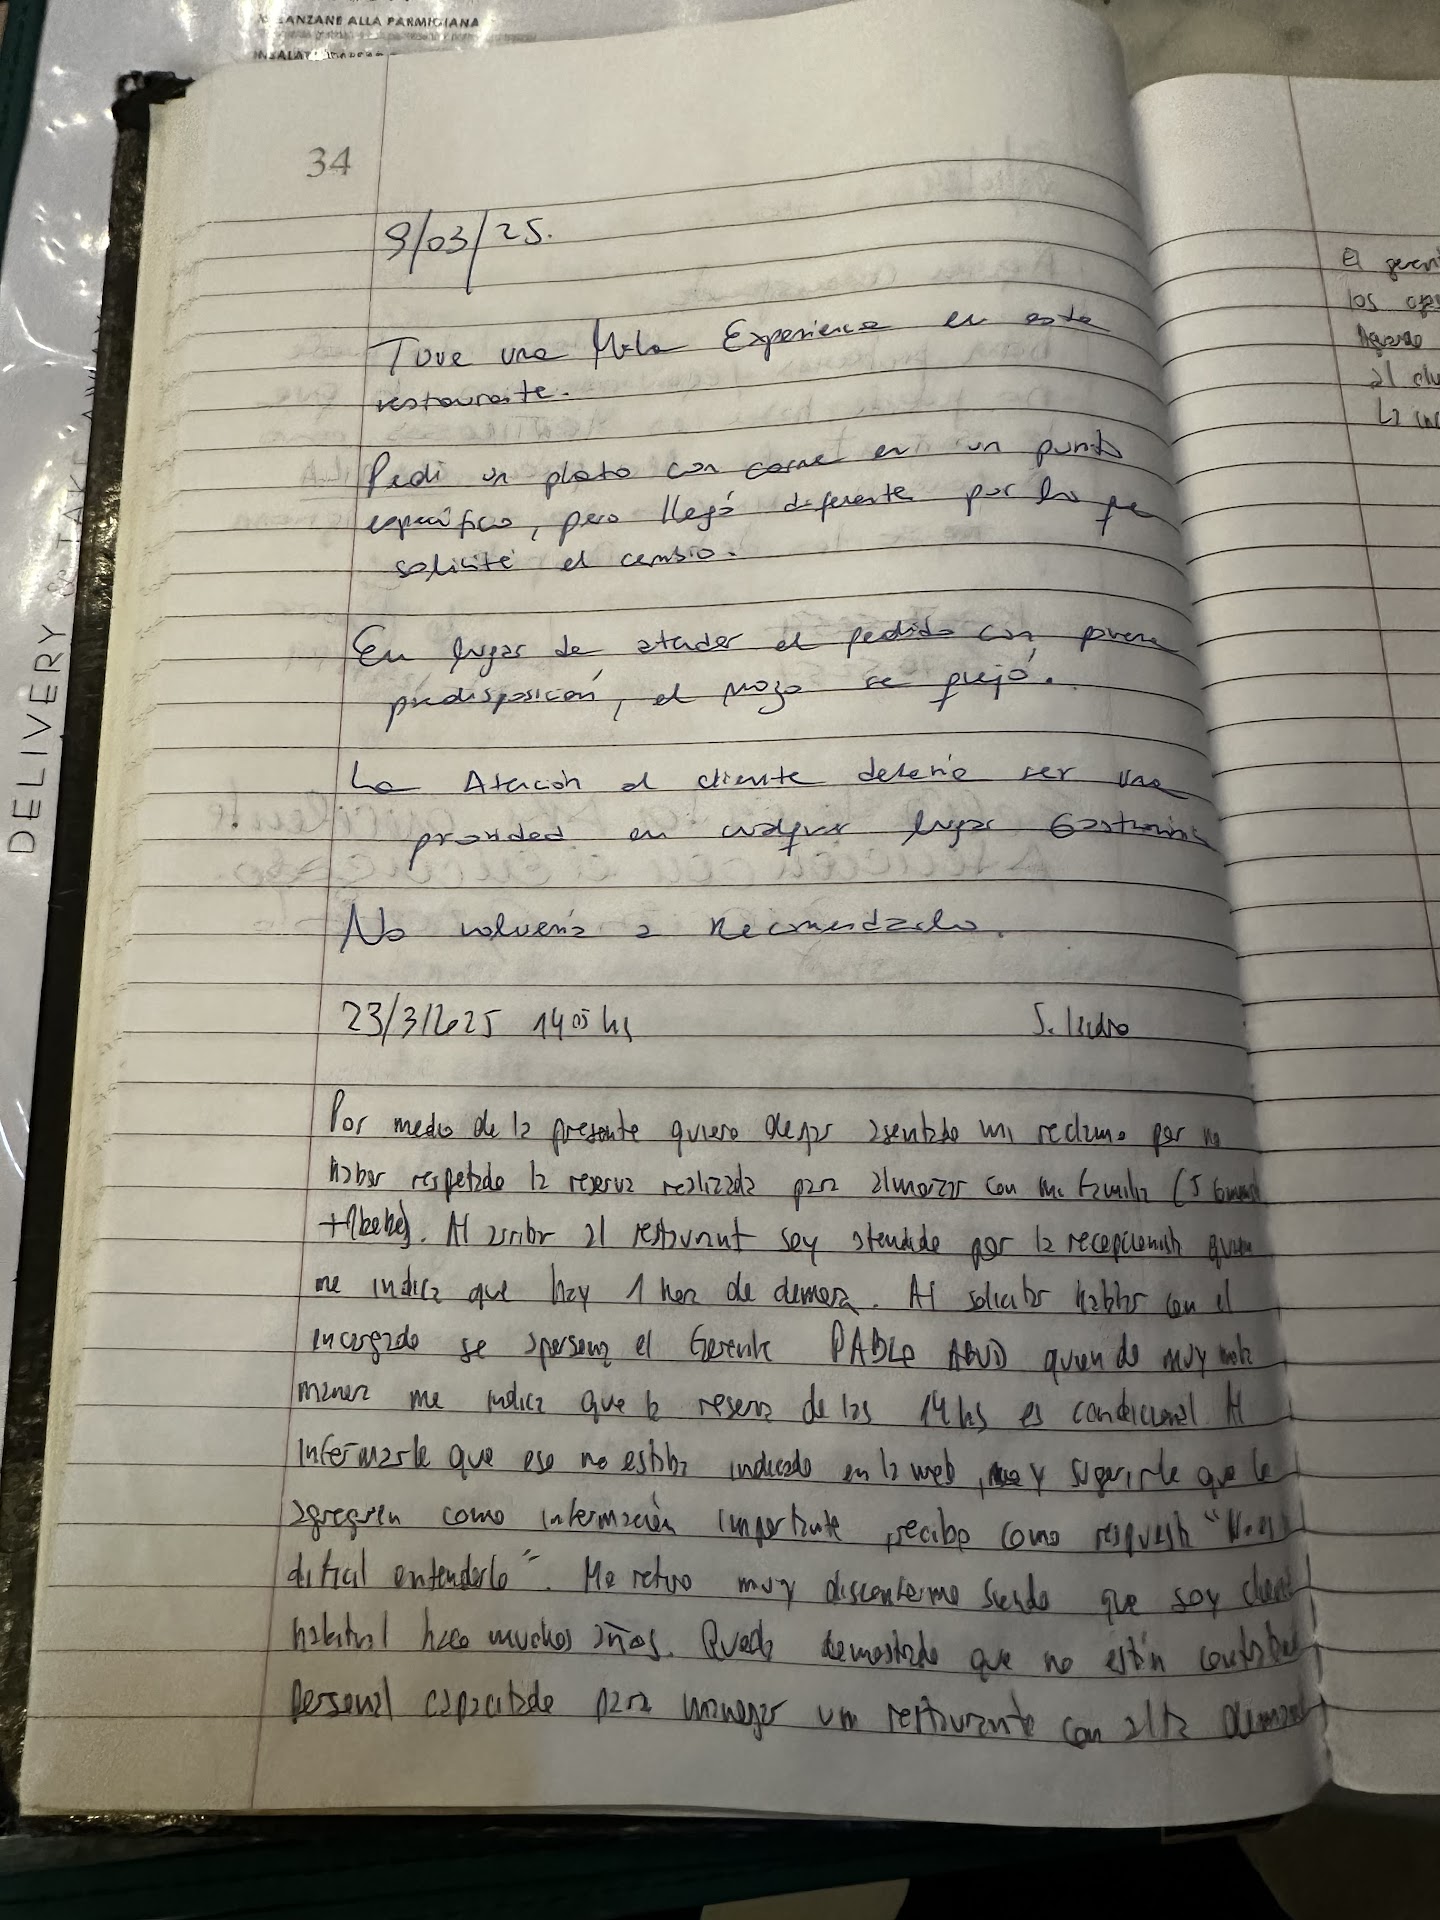 MELANZANE ALLA PARMIGIANA
DELIVERY & TAKE AWAY
34
9/03/25.
Tuve una Mala Experiencia en este
restaurante.
Pedí un plato con carne en un punto
específico, pero llegó diferente por lo que
solicité el cambio.
En lugar de atender el pedido con buena
predisposición, el mozo se quejó.
La Atención al cliente debería ser una
prioridad en cualquier lugar Gastronómico
No volvería a Recomendarlo.
23/3/2025 1405 hs S. Isidro
Por medio de la presente quiero dejar asentado mi reclamo por no
haber respetado la reserva realizada para almorzar con mi familia (5
+1bebe). Al arribar al restaurant soy atendido por la recepcionista quien
me indica que hay 1 hora de demora. Al solicitar hablar con el
encargado se apersona el Gerente PABLO ABUD quien de muy mala
manera me indica que la reserva de las 14 hs es condicional Al
informarle que eso no estaba indicado en la web, y sugerirle que lo
agreguen como información importante, recibo como respuesta "No es
dificil entenderlo". Me retiro muy disconforme siendo que soy cliente
habitual hace muchos años. Queda demostrado que no están
personal capacitado para manejar un restaurante con alta demanda
El
los
Aguardo
al
La